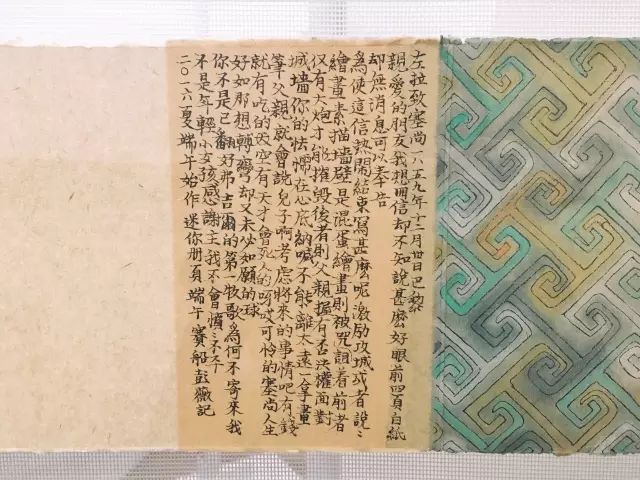 左拉致塞尚一八五九年十二月卅日巴黎
親愛的朋友我想回信却不知說甚麼好眼前四頁白紙
却無消息可以奉告
為使這信熱鬧結束寫甚麼呢激励攻城或者說々
繪畫素描墙壁是混蛋繪畫則被咒詛着前者
仅有大炮才能摧毁後者則父親握有否决權面對
城墙你的怯懦在心底納喊不能離太遠一拿畫
筆父親就會說兒子啊考虑將來的事情吧有錢
就有吃的天空有天才會死人的呵哎可怜的塞尚人生
好如那想轉彎却又未必如願的球
你不是已翻好弗吉爾的第一牧歌為何不寄來我
不是年輕小女孩感謝主我不會憤不平
二〇一六夏端午始作迷你册頁端午賽船彭薇記